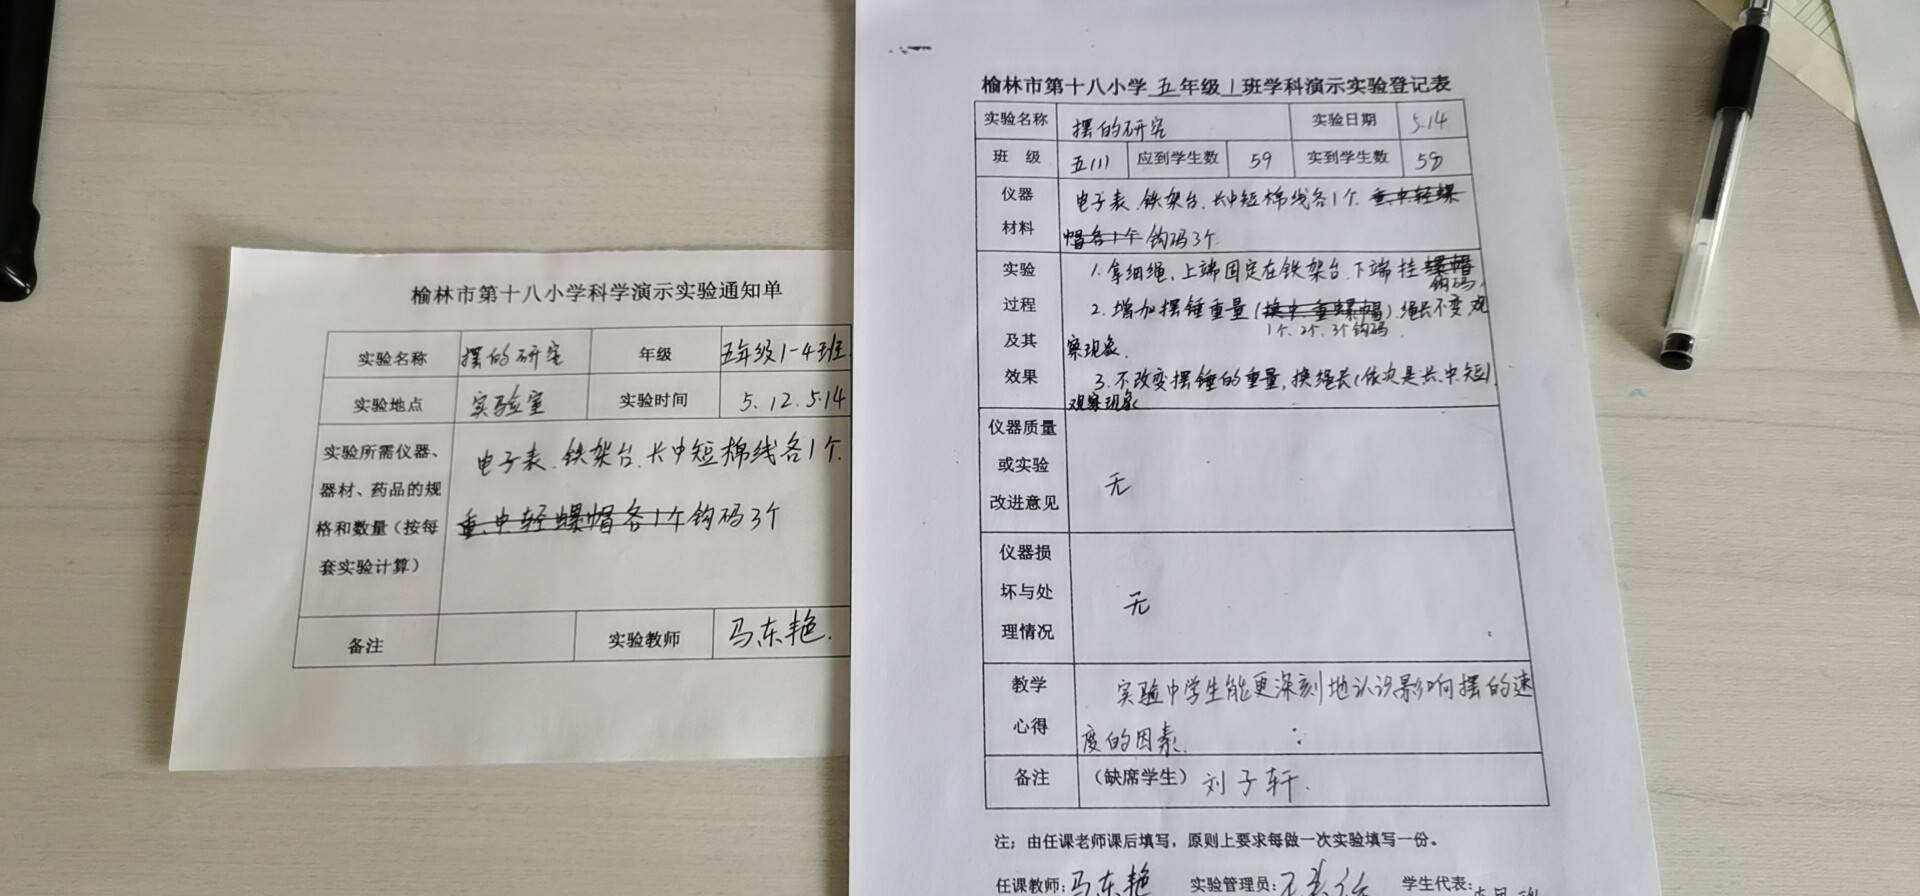 榆林市第十八小学科学演示实验通知单
实验名称 摆的研究 年级 五年级1-4班
实验地点 实验室 实验时间 5.12. 5.14
实验所需仪器、
器材、药品的规
格和数量（按每
套实验计算）
电子表.铁架台.长中短棉线各1个.
重.中.轻螺帽各1个 钩码3个
备注 实验教师 马东艳.
榆林市第十八小学 五 年级 1 班学科演示实验登记表
实验名称 摆的研究 实验日期 5.14
班 级 五(1) 应到学生数 59 实到学生数 58
仪器
材料
电子表.铁架台.长中短棉线各1个.重.中.轻螺
帽各1个 钩码3个.
实验
过程
及其
效果
1.拿细绳,上端固定在铁架台.下端挂螺帽
钩码.
2.增加摆锤重量(换中.重螺帽).绳长不变观
1个.2个.3个钩码.
察现象.
3.不改变摆锤的重量,换绳长(依次是长.中.短).
观察现象
仪器质量
或实验
改进意见
无
仪器损
坏与处
理情况
无
教学
心得
实验中学生能更深刻地认识影响摆的速
度的因素.
备注 （缺席学生） 刘子轩.
注；由任课老师课后填写，原则上要求每做一次实验填写一份。
任课教师:马东艳 实验管理员: 学生代表: